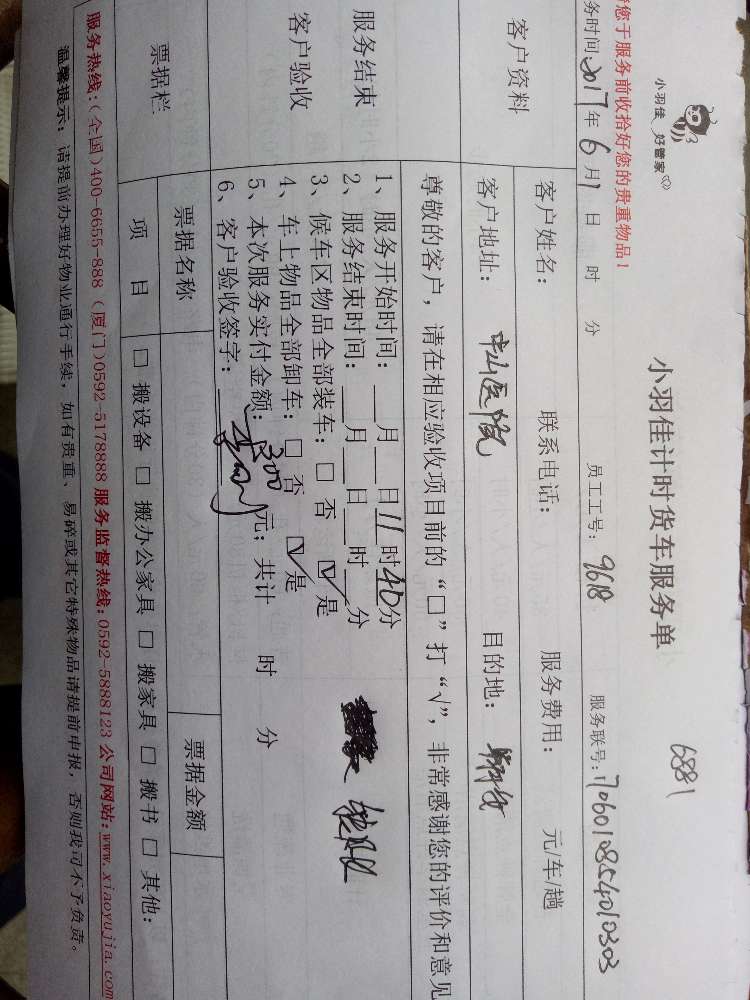 小羽佳 好管家
小羽佳计时货车服务单
6881
您于服务前收拾好您的贵重物品！
务时间2017年6月1日 时 分 员工工号：9618 服务联号：1706010854010303
客户资料
客户姓名： 联系电话： 服务费用： 元/车/趟
客户地址：中山医院 目的地：
服务结束
客户验收
尊敬的客户，请在相应验收项目前的“□”打“√”，非常感谢您的评价和意见
1、服务开始时间：__月__日11时40分
2、服务结束时间：__月__日__时__分
3、候车区物品全部装车：□否 ☑是
4、车上物品全部卸车：□否 ☑是
5、本次服务实付金额：300元；共计 时 分
6、客户验收签字：
票据栏
票据名称 票据金额
项目 □搬设备 □搬办公家具 □搬家具 □搬书 □其他：
服务热线：（全国）400-6655-888（厦门）0592-5178888 服务监督热线：0592-5888123 公司网站：www.xiaoyujia.com
温馨提示：请提前办理好物业通行手续，如有贵重、易碎或其它特殊物品请提前申报，否则我司不予负责。